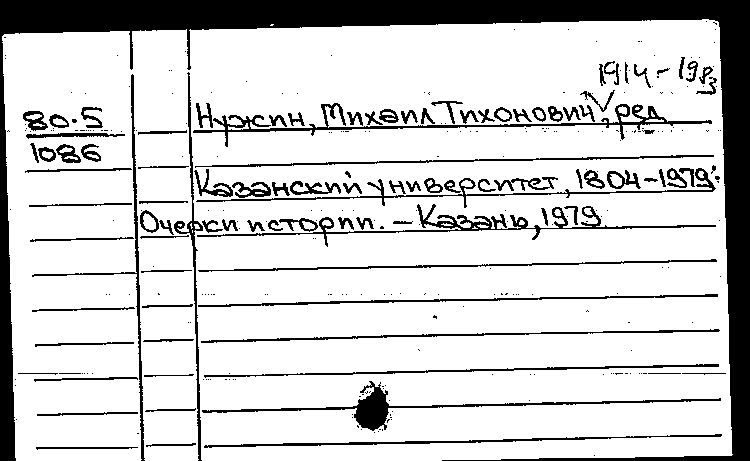 1914-1983
80.5
Нужин, Михаил Тихонович, ред.
1086
Казанский университет, 1804-1979:
Очерки истории. - Казань, 1979